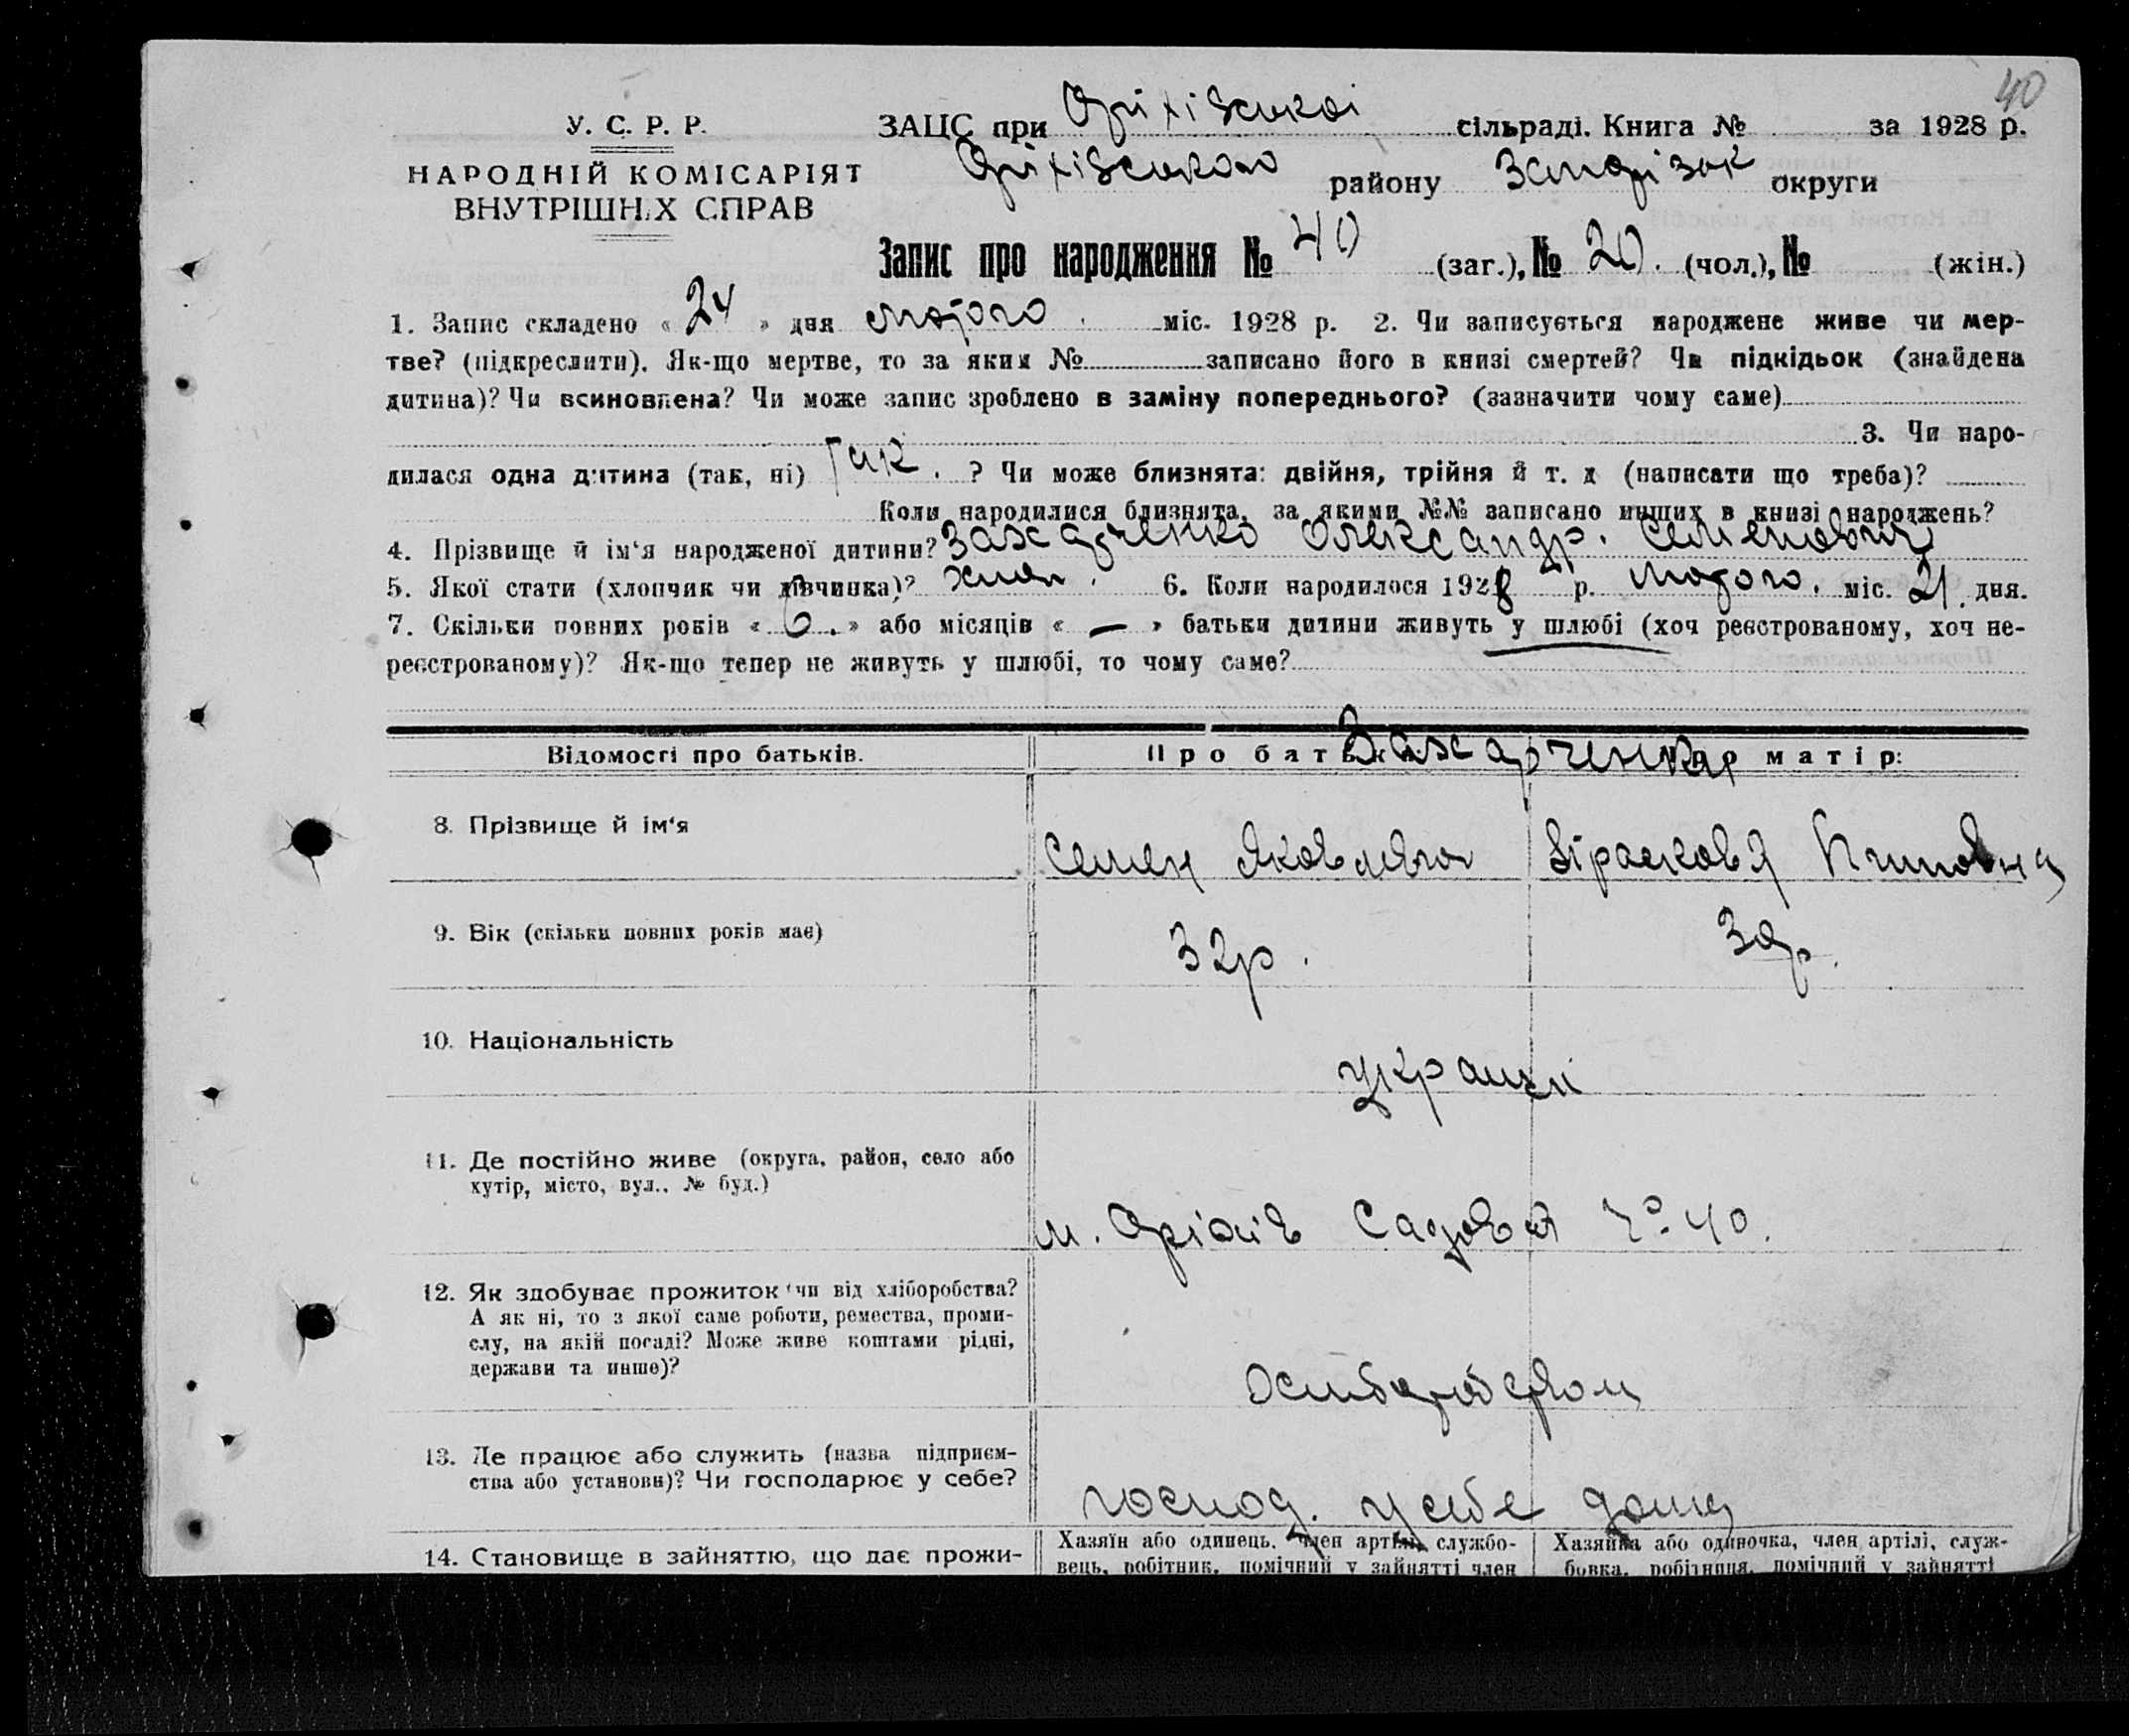 40
У. С. Р. Р.
НАРОДНІЙ КОМІСАРІЯТ
ВНУТРІШНІХ СПРАВ
ЗАЦС при Оріхівській сільраді. Книга № за 1928 р.
Оріхівського району Запоріжж округи
Запис про народження № 40 (заг.), № 20. (чол.), № (жін.)
1. Запис складено « 24 » дня лютого міс. 1928 р. 2. Чи записується народжене живе чи мер-
тве? (підкреслити). Як-що мертве, то за яким № записано його в книзі смертей? Чи підкідьок (знайдена
дитина)? Чи всиновлена? Чи може запис зроблено в заміну попереднього? (зазначити чому саме)
3. Чи наро-
дилася одна дитина (так, ні) Так. ? Чи може близнята: двійня, трійня й т. д (написати що треба)?
Коли народилися близнята, за якими №№ записано инших в книзі народжень?
4. Прізвище й ім‘я народженої дитини? Захарченко Олександр. Семенович
5. Якої стати (хлопчик чи дівчинка)? хлоп. 6. Коли народилося 1928 р. лютого. міс. 21. дня.
7. Скільки повних років « 6. » або місяців « — » батьки дитини живуть у шлюбі (хоч реєстрованому, хоч не-
реєстрованому)? Як-що тепер не живуть у шлюбі, то чому саме?
Відомості про батьків.
Про батька: Захарченко
Про матір:
8. Прізвище й ім‘я
Семен Яковлевич
9. Вік (скільки повних років має)
32р.
10. Національність
україн
11. Де постійно живе (округа, район, село або
хутір, місто, вул., № буд.)
м. Оріхів Садовая № 40.
12. Як здобуває прожиток (чи від хліборобства?
А як ні, то з якої саме роботи, ремества, проми-
слу, на якій посаді? Може живе коштами рідні,
держави та инше)?
хліборобством
13. Де працює або служить (назва підприєм-
ства або установи)? Чи господарює у себе?
господ. у себе дома
14. Становище в зайняттю, що дає прожи-
Хазяїн або одинець, член артілі, службо-
вець, робітник, помічний у зайнятті член
Хазяйка або одиночка, член артілі, служ-
бовка, робітниця, помічний у зайнятті